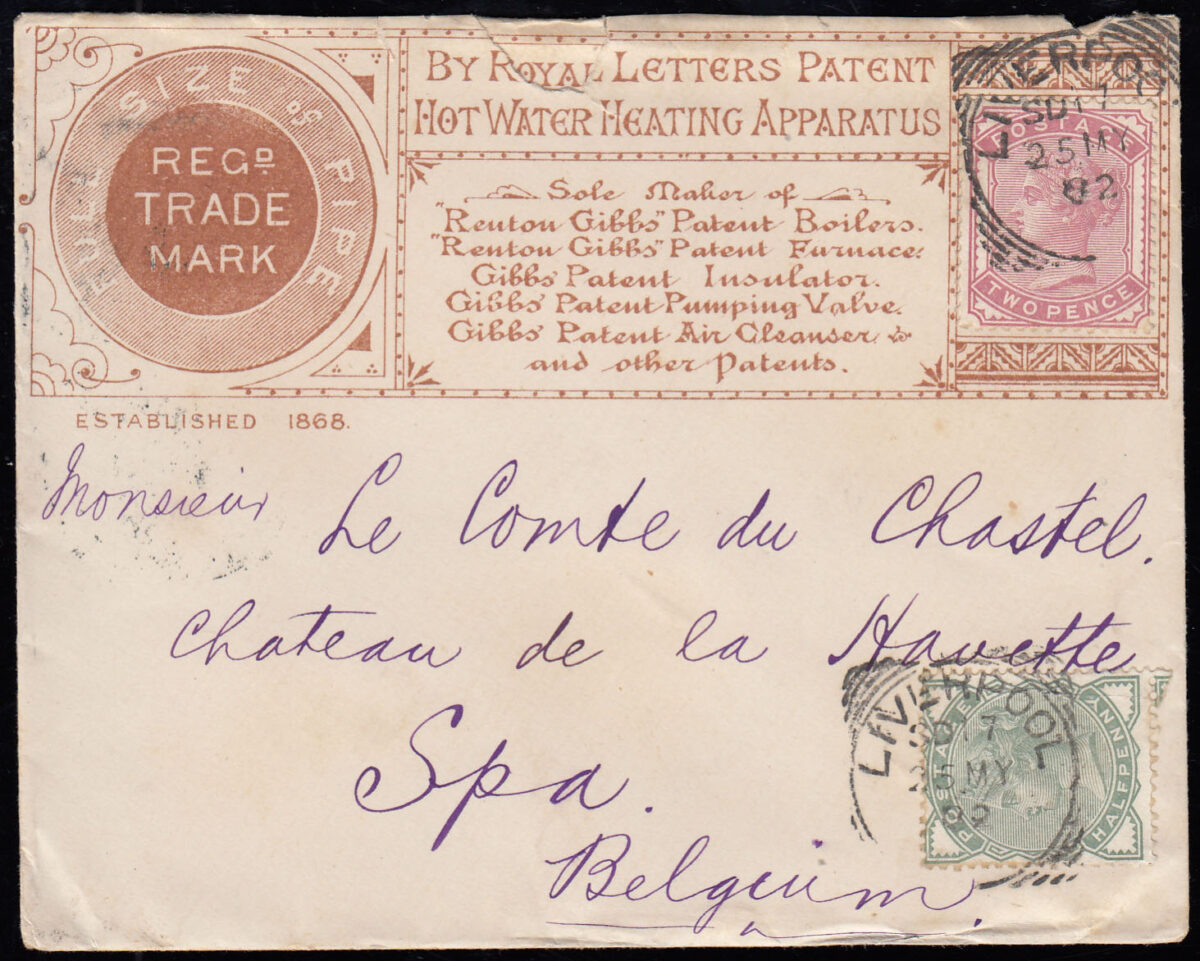 FULL SIZE OF PIPE
REGD
TRADE
MARK
BY ROYAL LETTERS PATENT
HOT WATER HEATING APPARATUS
Sole Maker of
"Renton Gibbs" Patent Boilers.
"Renton Gibbs" Patent Furnace.
Gibbs' Patent Insulator.
Gibbs' Patent Pumping Valve.
Gibbs' Patent Air Cleanser
and other Patents.
ESTABLISHED 1868.
LIVERPOOL
SD 17
25 MY
82
POSTAGE
TWO PENCE
Monsieur Le Comte du Chastel.
Chateau de la Havette
Spa.
Belgium.
LIVERPOOL
17
25 MY
82
POSTAGE
HALFPENNY